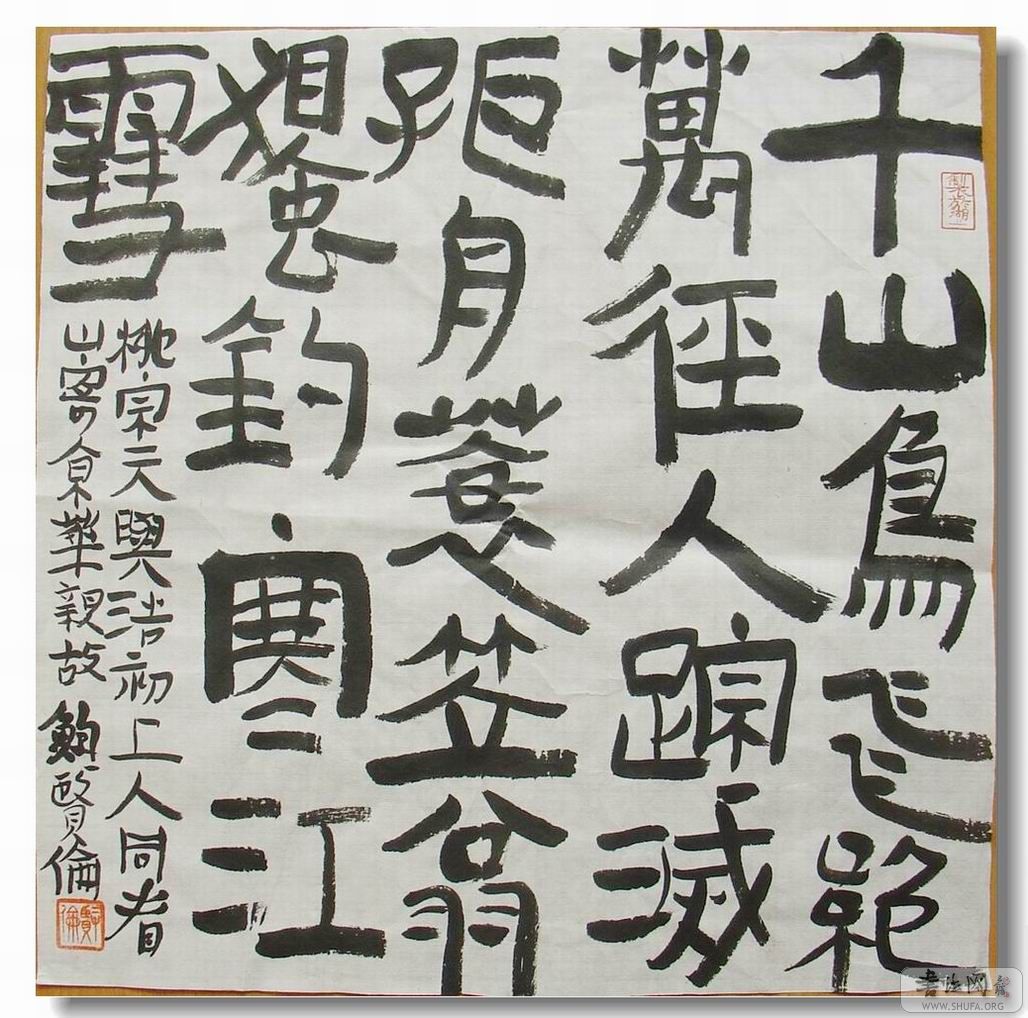 千山鳥飛絕
萬徑人踪滅
孤舟蓑笠翁
獨釣寒江
雪
柳宗元與浩初上人同看
山寄京華親故 鮑賢倫
賢倫
書法网
WWW.SHUFA.ORG